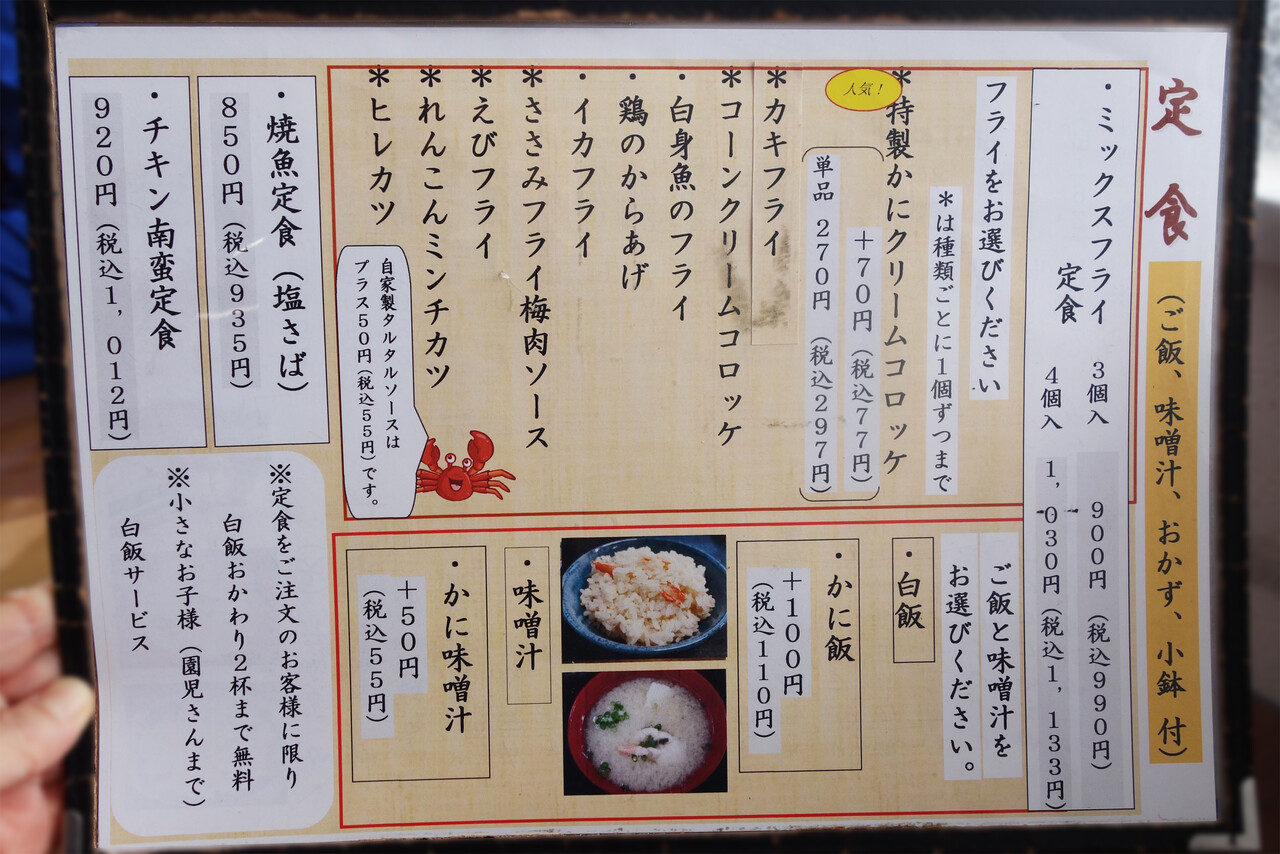 定食
（ご飯、味噌汁、おかず、小鉢 付）
・ミックスフライ 3個入 900円 （税込990円）
定食 4個入 1,030円（税込1,133円）
フライをお選びください
＊は種類ごとに1個ずつまで
人気！
＊特製かにクリームコロッケ
＋70円（税込77円）
単品 270円（税込297円）
＊カキフライ
＊コーンクリームコロッケ
・白身魚のフライ
・鶏のからあげ
・イカフライ
＊ささみフライ梅肉ソース
＊えびフライ
＊れんこんミンチカツ
＊ヒレカツ
自家製タルタルソースは
プラス50円（税込55円）です。
ご飯と味噌汁を
お選びください。
・白飯
・かに飯
＋100円
（税込110円）
・味噌汁
・かに味噌汁
＋50円
（税込55円）
・焼魚定食（塩さば）
850円（税込935円）
・チキン南蛮定食
920円（税込1,012円）
※定食をご注文のお客様に限り
白飯おかわり2杯まで無料
※小さなお子様（園児さんまで）
白飯サービス